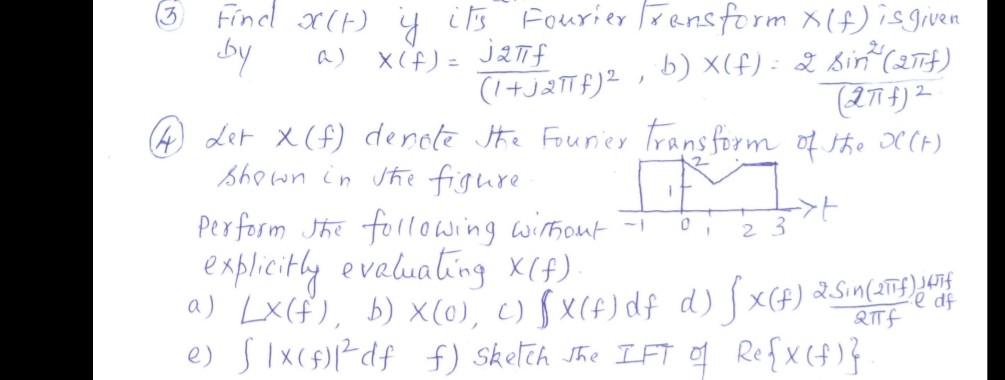 ③ Find x(t) if its Fourier Transform X(f) is given
by a) X(f) = j2πf / (1+j2πf)², b) X(f) = 2 sin²(2πf) / (2πf)²
④ Let X(f) denote the Fourier Transform of the x(t)
shown in the figure.
2
1
-1 0 1 2 3 t
Perform the following without
explicitly evaluating X(f).
a) ∠X(f), b) X(0), c) ∫X(f)df d) ∫X(f) 2Sin(2πf)/2πf e^{j4πf} df
e) ∫|X(f)|²df f) Sketch the IFT of Re{X(f)}.